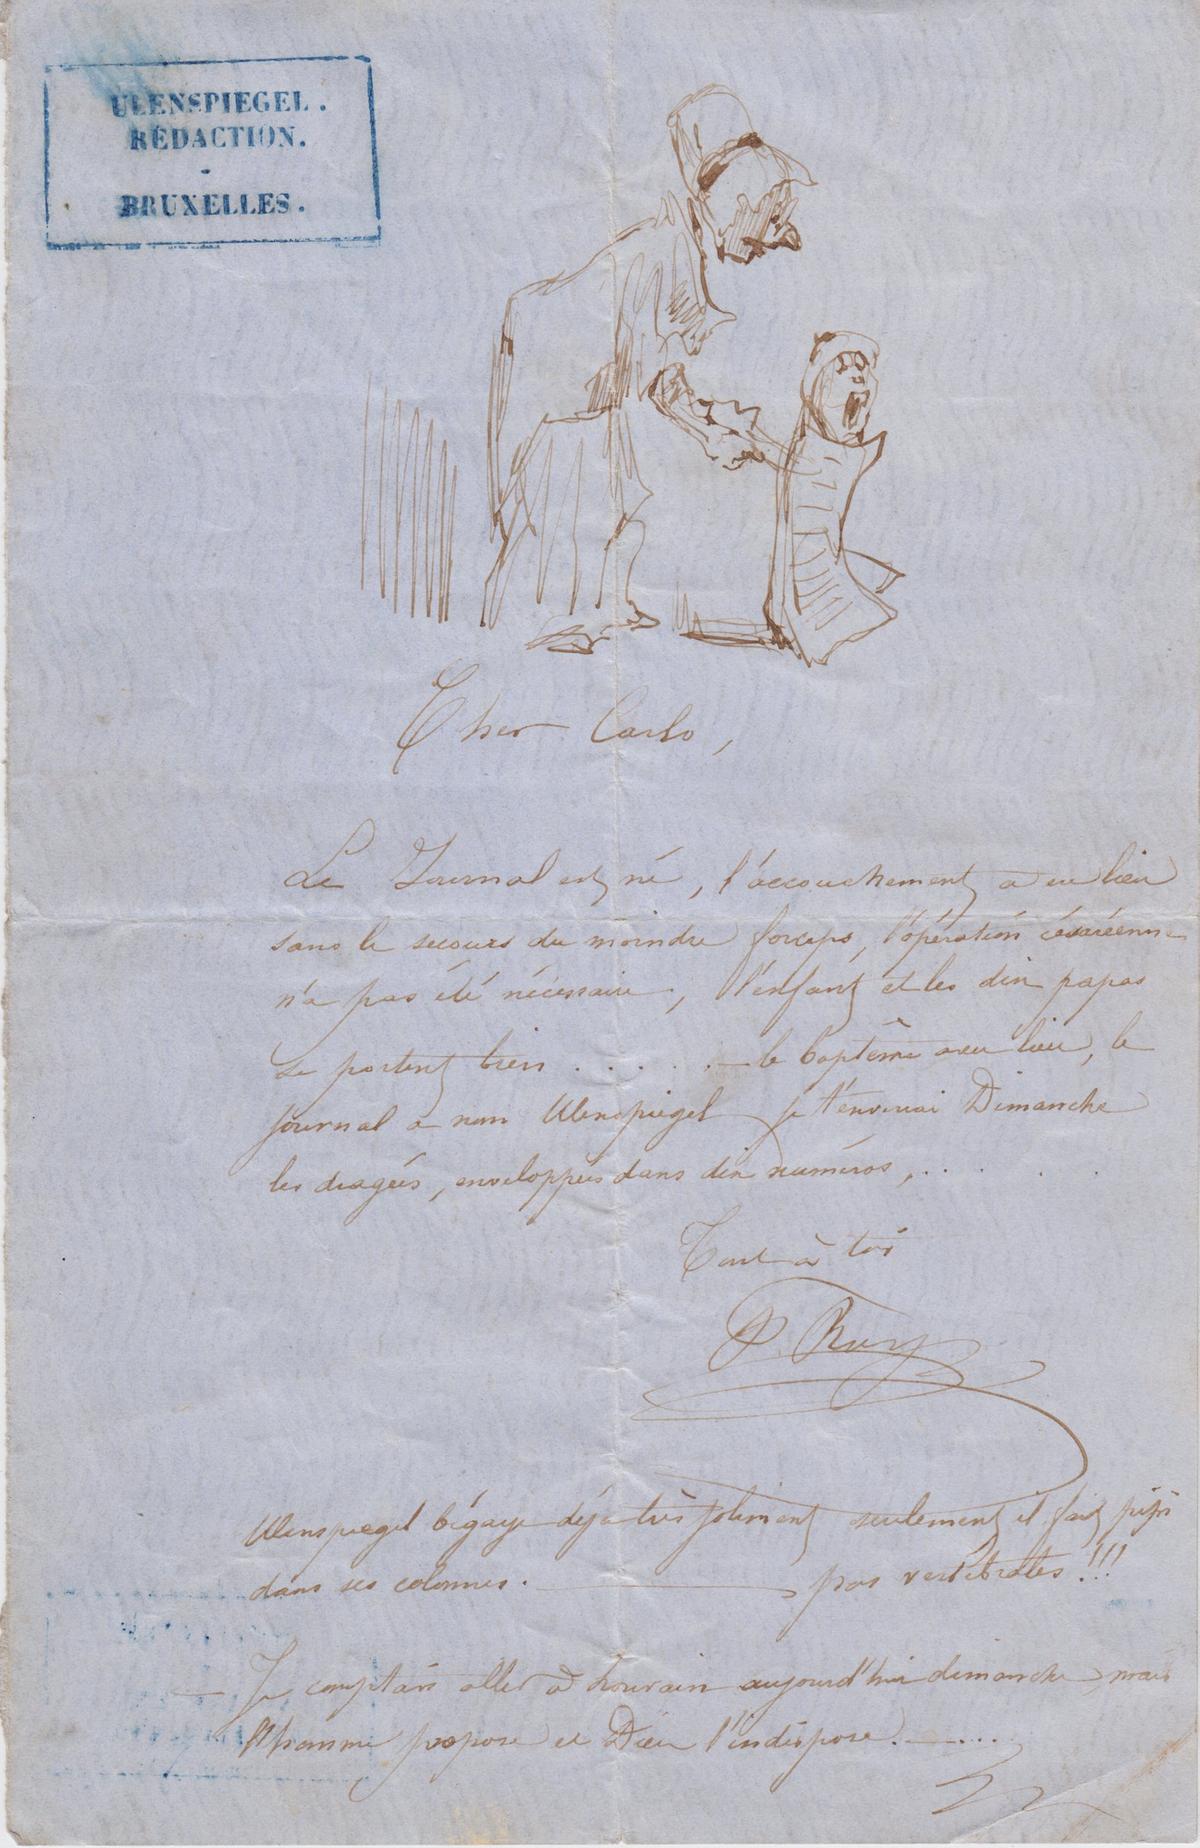 ULENSPIEGEL.
RÉDACTION.
BRUXELLES.
Cher Carlo,
Le Journal est né, l'accouchement a eu lieu
sans le secours du moindre forceps, l'opération césaréenne
n'a pas été nécessaire, l'enfant et les dix papas
se portent bien . . . . . . — le baptême a eu lieu, le
journal a nom Ulenspiegel je t'enverrai Dimanche
les dragées, enveloppées dans dix numéros, . . . . .
Tout à toi
Ulenspiegel bégaye déjà très joliment seulement il fait pipi
dans ses colonnes. ——— pas vertébrales!!!
— Je comptais aller à Louvain aujourd'hui dimanche, mais
l'homme propose et Dieu l'indispose. — ....